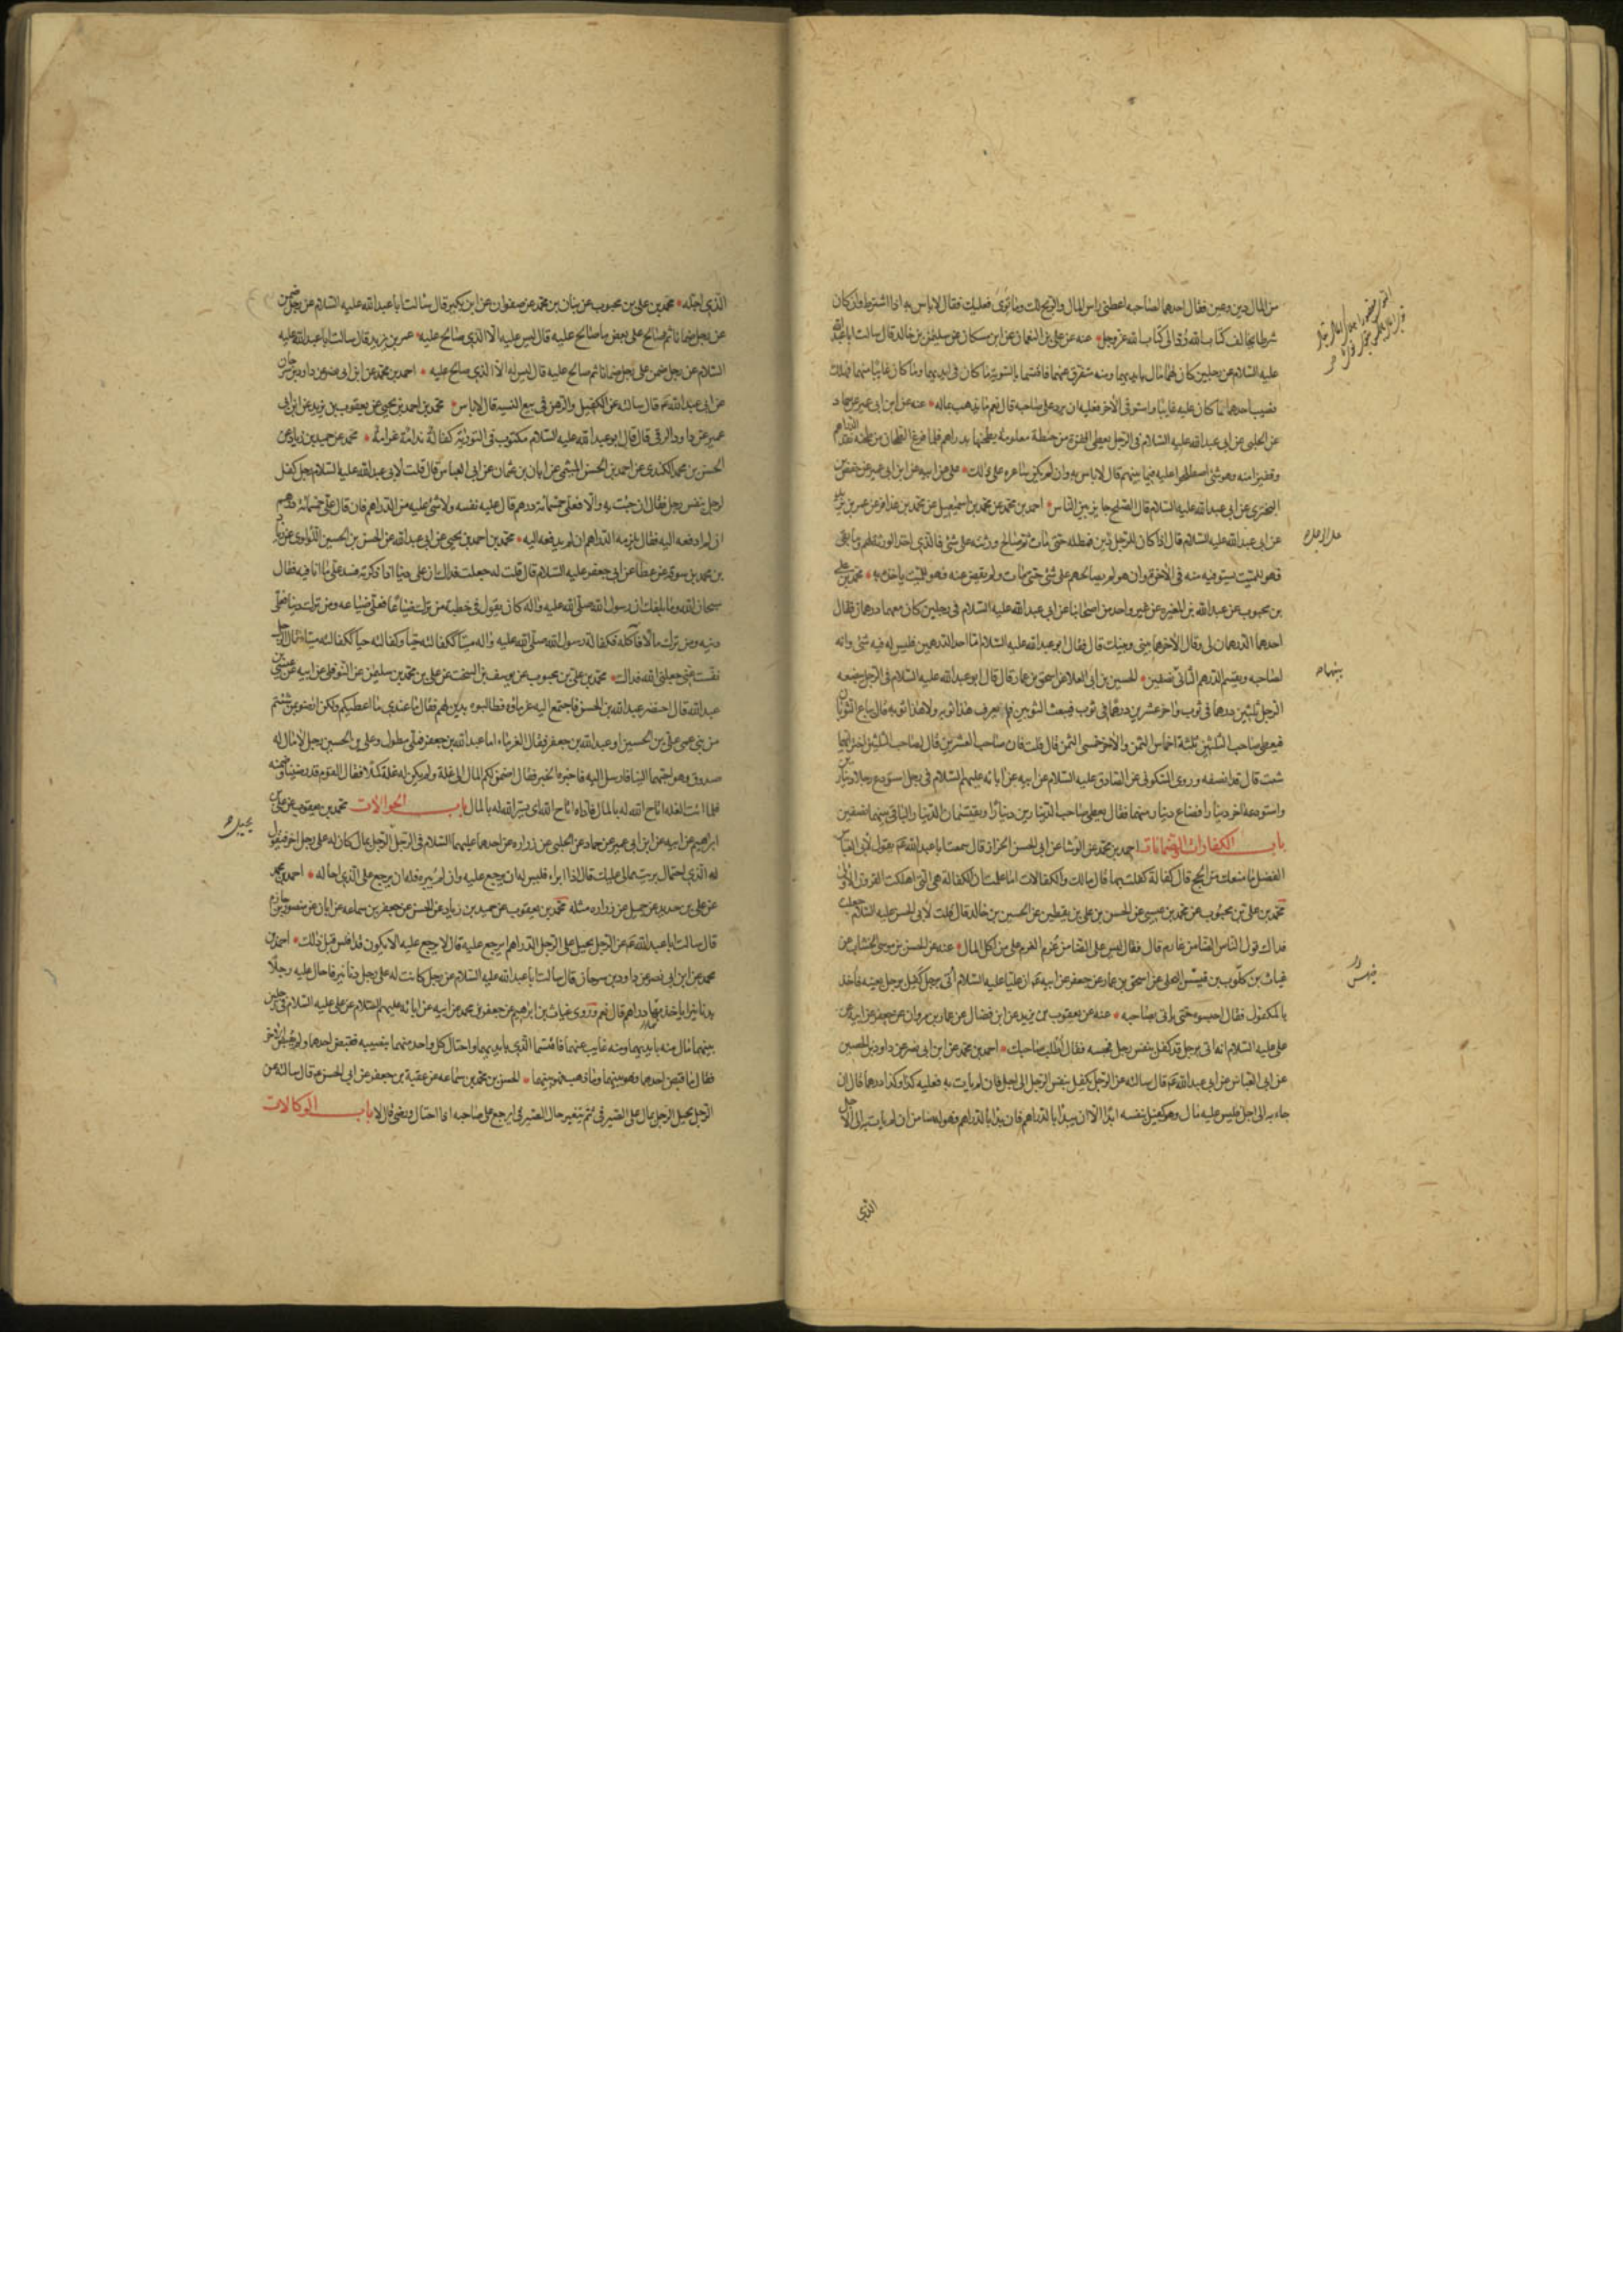 من المال دين وعين فقال احدهما لصاحبه اعطنى راس المال والربح لك وما توى فعليك فقال لا باس به اذا اشترط وان كان
شرطا يخالف كتاب الله رد الى كتاب الله عز وجل عنه عن على بن النعمان عن ابن مسكان عن سليمن بن خالد قال سالت ابا عبد الله
عليه السلام عن رجلين كان لهما مال بايديهما ومنه متفرق عنهما فاقتسما بالسوية ما كان فى ايديهما وما كان غايبا عنهما فهلك
نصيب احدهما مما كان عليه غايبا واستوفى الاخر فعليه ان يرد على صاحبه قال نعم ما يذهب بماله عنه عن ابن ابى عمير عن حماد
عن الحلبى عن ابى عبد الله عليه السلام فى الرجل يعطى اقفزة من حنطة معلومة يطحنها بدراهم فلما فرغ الطحان من طحنه نقده الدراهم
وقفيزا منه وهو شئ اصطلحوا عليه فيما بينهم قال لا باس به وان لم يكن ساعره على ذلك على عن ابيه عن ابن ابى عمير عن حفص بن
البخترى عن ابى عبد الله عليه السلام قال الصلح جايز بين الناس احمد بن محمد عن محمد بن اسمعيل عن محمد بن عذافر عن عمر بن يزيد
عن ابى عبد الله عليه السلام قال اذا كان للرجل دين فمطله حتى مات ثم صالح ورثته على شئ فالذى اخذ الورثة لهم وما بقى
فهو للميت يستوفيه منه فى الاخرة وان هو لم يصالحهم على شئ حتى مات ولم يقض عنه فهو للميت ياخذه به محمد بن على
بن محبوب عن عبد الله بن المغيره عن غير واحد من اصحابنا عن ابى عبد الله عليه السلام فى رجلين كان معهما درهمان فقال
احدهما الدرهمان لى وقال الاخر هما بينى وبينك قال فقال ابو عبد الله عليه السلام اما احد الدرهمين فليس له فيه شئ وانه
لصاحبه ويقسم الدرهم الثانى نصفين الحسين بن ابى العلا عن اسحق بن عمار قال قال ابو عبد الله عليه السلام فى الرجل يبضعه
الرجل ثلثين درهما فى ثوب واخر عشرين درهما فى ثوب فبعث الثوبين فلم يعرف هذا ثوبه ولا هذا ثوبه قال يباع الثوبان
فيعطى صاحب الثلثين ثلثة اخماس الثمن والاخر خمسى الثمن قال قلت فان صاحب العشرين قال لصاحب الثلثين اختر ايهما
شئت قال قد انصفه وروى السكونى عن الصادق عليه السلام عن ابيه عن ابائه عليهم السلام فى رجل استودع رجلا دينارين
واستودعه اخر دينارا فضاع دينار منهما فقال يعطى صاحب الدينارين دينارا ويقتسمان الدينار الباقى بينهما نصفين
باب الكفارات والضمانات احمد بن محمد عن الوشا عن ابى الحسن الخزاز قال سمعت ابا عبد الله عم يقول لابى العباس
الفضل ما منعك من الحج قال كفالة كفلت بها قال مالك والكفالات اما علمت ان الكفالة هى التى اهلكت القرون الاولى
محمد بن على بن محبوب عن محمد بن عيسى عن الحسن بن على بن يقطين عن الحسين بن خالد قال قلت لابى الحسن عليه السلام جعلت
فداك قول الناس الضامن غارم قال فقال ليس على الضامن غرم الغرم على من اكل المال عنه عن الحسن بن موسى الخشاب عن
غياث بن كلوب بن فيس البجلى عن اسحق بن عمار عن جعفر عن ابيه عم ان عليا عليه السلام اتى برجل كفل برجل بعينه فاخذ
بالمكفول فقال احبسوه حتى ياتى بصاحبه عنه عن يعقوب بن يزيد عن ابن فضال عن عمار بن مروان عن جعفر عن ابيه عن
على عليه السلام انه اتى برجل قد كفل بنفس رجل فحبسه فقال اطلب صاحبك احمد بن محمد عن ابن ابى نصر عن داود بن الحصين
عن ابى العباس عن ابى عبد الله عم قال سالته عن الرجل يكفل بنفس الرجل الى اجل فان لم يات به فعليه كذا وكذا درهما قال ان
جاء به الى اجل فليس عليه مال وهو كفيل بنفسه ابدا الا ان يبدا بالدراهم فان بدا بالدراهم فهو له ضامن ان لم يات به الى الاجل
بينهما
الذى
الذى اجله محمد بن على بن محبوب عن بنان بن محمد عن صفوان عن ابن بكير قال سالت ابا عبد الله عليه السلام عن رجل ضمن
عن رجل ضمانا ثم صالح على بعض ما صالح عليه قال ليس عليه الا الذى صالح عليه عمر بن يزيد قال سالت ابا عبد الله عليه
السلام عن رجل ضمن على رجل ضمانا ثم صالح عليه قال ليس له الا الذى صالح عليه احمد بن محمد عن ابن ابى نصر عن داود بن سرحان
عن ابى عبد الله عم قال سالته عن الكفيل والرهن فى بيع النسيه قال لا باس محمد بن احمد بن يحيى عن يعقوب بن يزيد عن ابن ابى
عمير عن داود الرقى قال قال ابو عبد الله عليه السلام مكتوب فى التورية كفالة ندامة غرامة محمد عن حميد بن زياد عن
الحسن بن محمد الكندى عن احمد بن الحسن الميثمى عن ابان بن عثمان عن ابى العباس قال قلت لابى عبد الله عليه السلام رجل كفل
لرجل بنفس رجل فقال ان جئت به والا فعلى خمسمائة درهم قال عليه نفسه ولا شئ عليه من الدراهم فان قال على خمسمائة درهم
ان لم ادفعه اليه فقال يلزمه الدراهم ان لم يدفعه اليه محمد بن احمد بن يحيى عن ابى عبد الله عن الحسن بن الحسين اللؤلوى عن
بن محمد بن سوقه عن عطا عن ابى جعفر عليه السلام قال قلت له جعلت فداك ان على دينا اذا ذكرته فسد على ما انا فيه فقال
سبحان الله وما بلغك ان رسول الله صلى الله عليه واله كان يقول فى خطبته من ترك ضياعا فعلى ضياعه ومن ترك دينا فعلى
دينه ومن ترك مالا فاكله فكفالة رسول الله صلى الله عليه واله ميتا ككفالته حيا وكفالته حيا ككفالته ميتا فقال الرجل
نفست عنى جعلنى الله فداك محمد بن على بن محبوب عن يوسف بن السخت عن على بن محمد بن سليمن عن النوفلى عن ابيه عن عيسى بن
عبد الله قال احتضر عبد الله بن الحسن فاجتمع اليه غرماؤه فطالبوه بدين لهم فقال ما عندى ما اعطيكم ولكن ارضو بمن شئتم
من بنى عمى على بن الحسين او عبد الله بن جعفر فقال الغرماء اما عبد الله بن جعفر فملى مطول وعلى بن الحسين رجل لا مال له
صدوق وهو احبهما الينا فارسل اليه فاخبره الخبر فقال اضمن لكم المال الى غلة ولم يكن له غلة كملا فقال القوم قد رضينا وضمنه
فلما اتت الغله اتاح الله له بالمال فاداه اتاح الله اى يسر الله له بالمال باب الحوالات محمد بن يعقوب عن على بن
ابراهيم عن ابيه عن ابن ابى عمير عن حماد عن الحلبى عن زراره عن احدهما عليهما السلام فى الرجل الرجل بمال كان له على رجل اخر فيقول
له الذى احتال برئت مما لى عليك قال اذا ابراه فليس له ان يرجع عليه وان لم يبره فله ان يرجع على الذى احاله احمد بن محمد
عن على بن حديد عن جميل عن زراره مثله محمد بن يعقوب عن حميد بن زياد عن الحسن عن جعفر بن سماعه عن ابان عن منصور بن حازم
قال سالت ابا عبد الله عم عن الرجل يحيل على الرجل الدراهم ايرجع عليه قال لا يرجع عليه الا يكون قد افلس قبل ذلك احمد بن
محمد عن ابن ابى نصر عن داود بن سرحان قال سالت ابا عبد الله عليه السلام عن رجل كانت له على رجل دنانير فاحال عليه رجلا
بدنانير اياخذ بها دراهم قال نعم وروى غياث بن ابرهيم عن جعفر بن محمد عن ابيه عن ابائه عليهم السلام عن على عليه السلام فى رجلين
بينهما مال منه بايديهما ومنه غايب عنهما فاقتسما الذى بايديهما واحتال كل واحد منهما بنصيبه فقبض احدهما ولم يقبض الاخر
فقال ما قبض احدهما فهو بينهما وما ذهب فهو بينهما الحسن بن محمد بن سماعه عن عقبة بن جعفر عن ابى الحسن عم قال سالته عن
الرجل يحيل الرجل بمال على الصيرفى ثم يتغير حال الصيرفى ايرجع على صاحبه اذا احتال ورضى قال لا باب الوكالات
يحيل